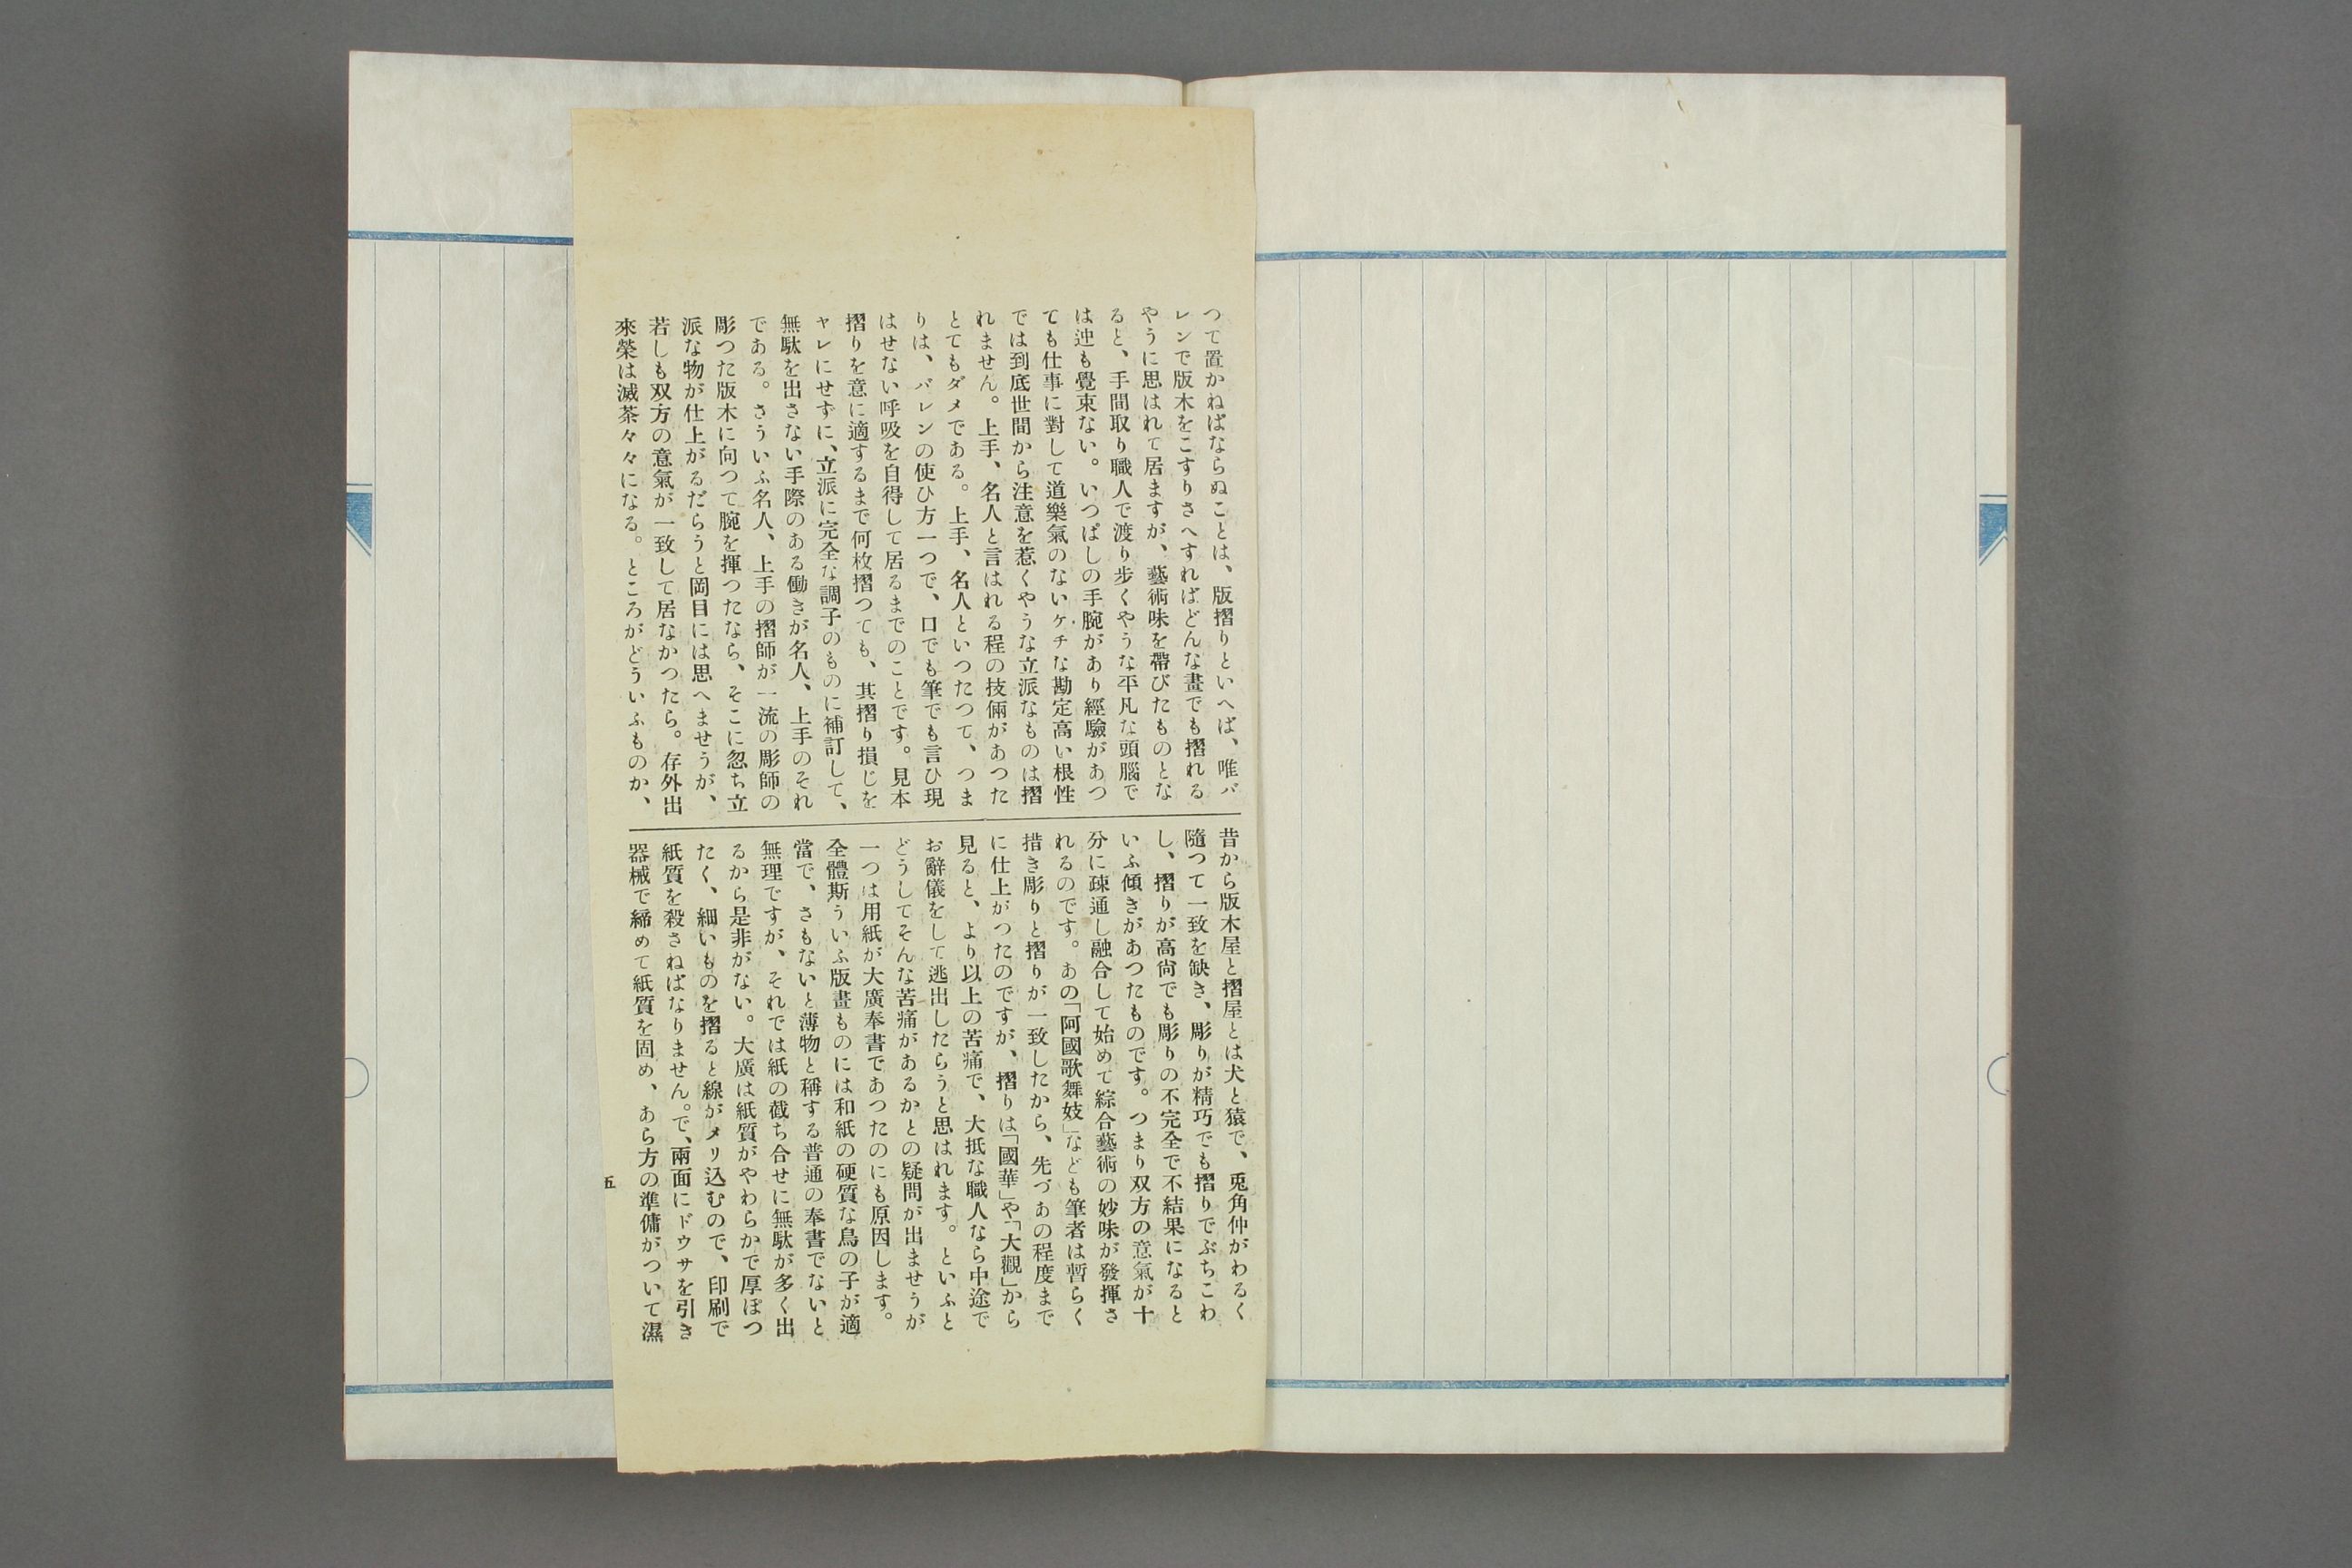 つて置かねばならぬことは、版摺りといへば、唯バ
レンで版木をこすりさへすればどんな畫でも摺れる
やうに思はれて居ますが、藝術味を帶びたものとな
ると、手間取り職人で渡り歩くやうな平凡な頭腦で
は迚も覺束ない。いつぱしの手腕があり經驗があつ
ても仕事に對して道樂氣のないケチな勘定高い根性
では到底世間から注意を惹くやうな立派なものは摺
れません。上手、名人と言はれる程の技倆があつた
とてもダメである。上手、名人といつたつて、つま
りは、バレンの使ひ方一つで、口でも筆でも言ひ現
はせない呼吸を自得して居るまでのことです。見本
摺りを意に適するまで何枚摺つても、其摺り損じを
ヤレにせずに、立派に完全な調子のものに補訂して、
無駄を出さない手際のある働きが名人、上手のそれ
である。さういふ名人、上手の摺師が一流の彫師の
彫つた版木に向つて腕を揮つたなら、そこに忽ち立
派な物が仕上がるだらうと岡目には思へませうが、
若しも双方の意氣が一致して居なかつたら。存外出
來榮は滅茶々々になる。ところがどういふものか、
昔から版木屋と摺屋とは犬と猿で、兎角仲がわるく
隨つて一致を缺き、彫りが精巧でも摺りでぶちこわ
し、摺りが高尚でも彫りの不完全で不結果になると
いふ傾きがあつたものです。つまり双方の意氣が十
分に疎通し融合して始めて綜合藝術の妙味が發揮さ
れるのです。あの「阿國歌舞妓」なども筆者は暫らく
措き彫りと摺りが一致したから、先づあの程度まで
に仕上がつたのですが、摺りは「國華」や「大觀」から
見ると、より以上の苦痛で、大抵な職人なら中途で
お辭儀をして逃出したらうと思はれます。といふと
どうしてそんな苦痛があるかとの疑問が出ませうが
一つは用紙が大廣奉書であつたのにも原因します。
全體斯ういふ版畫ものには和紙の硬質な鳥の子が適
當で、さもないと薄物と稱する普通の奉書でないと
無理ですが、それでは紙の截ち合せに無駄が多く出
るから是非がない。大廣は紙質がやわらかで厚ぼつ
たく、細いものを摺ると線がメリ込むので、印刷で
紙質を殺さねばなりません。で、兩面にドウサを引き
器械で締めて紙質を固め、あら方の準備がついて濕
五